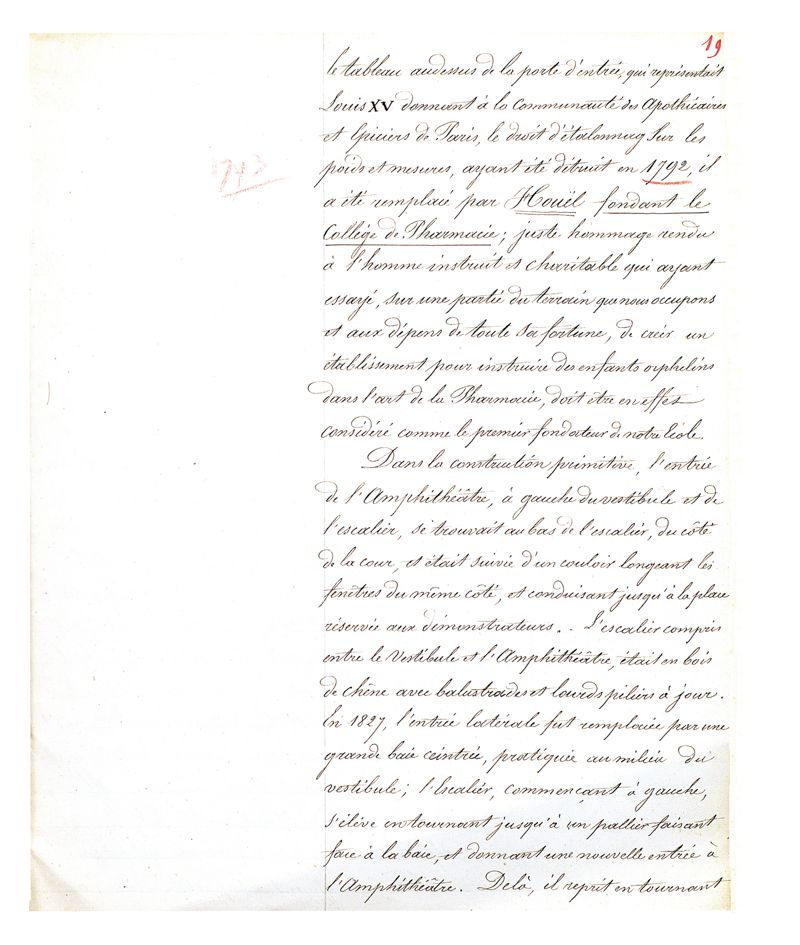 19
le tableau audessus de la porte d'entrée, qui représentait
Louis XV donnant à la Communauté des Apothicaires
et Epiciers de Paris, le droit d'étalonnag sur les
poids et mesures, ayant été détruit en 1792, il
1793
a été remplacé par Houël fondant le
Collége de Pharmacie; juste hommage rendu
à l'homme instruit et charitable qui ayant
essayé, sur une partie du terrain que nous occupons
et aux dépens de toute sa fortune, de créer un
établissement pour instruire des enfants orphelins
dans l'art de la Pharmacie, doit être en effet
considéré comme le premier fondateur de notre Ecole.
Dans la construction primitive, l'entrée
de l'Amphithéâtre, à gauche du vestibule et de
l'escalier, se trouvait au bas de l'escalier, du côté
de la cour, et était suivie d'un couloir longeant les
fenêtres du même côté, et conduisant jusqu'à la place
réservée aux démonstrateurs. . L'escalier compris
entre le Vestibule et l'Amphithéâtre, était en bois
de chêne avec balustrades et lourds piliers à jour.
En 1827, l'entrée latérale fut remplacée par une
grande baie ceintrée, pratiquée au milieu du
vestibule; l'Escalier, commençant à gauche,
s'élève en tournant jusqu'à un pallier faisant
face à la baie, et donnant une nouvelle entrée à
l'Amphithéâtre. Delà, il reprit en tournant